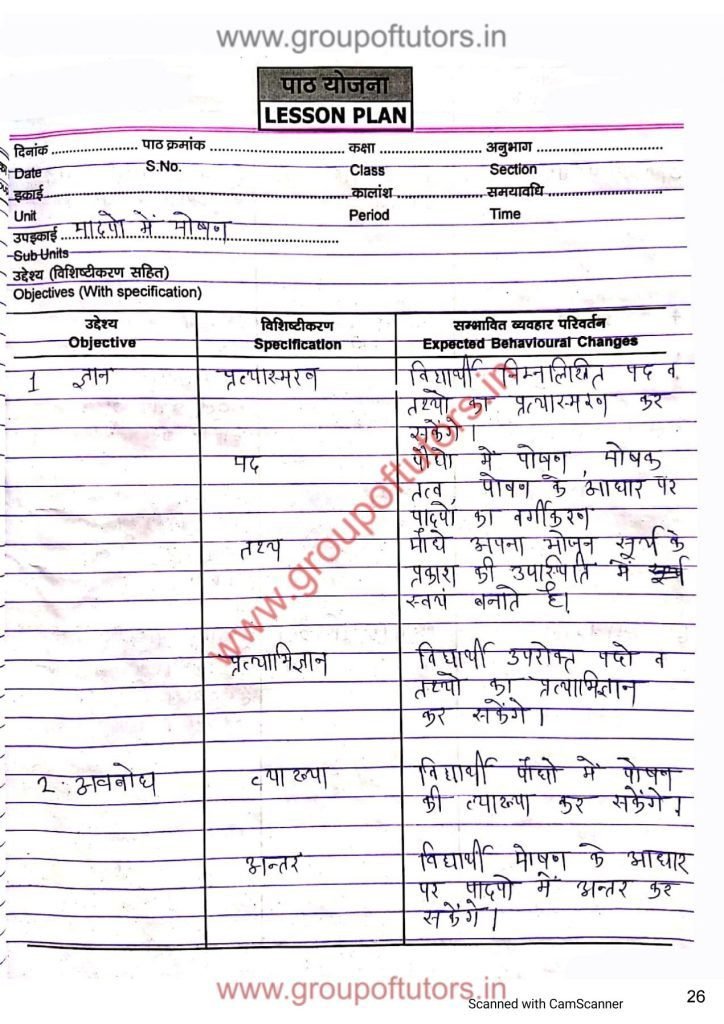 www.groupoftutors.in
पाठ योजना
LESSON PLAN
दिनांक ...................... पाठ क्रमांक .................................. कक्षा .................................. अनुभाग ..................................
Date S.No. Class Section
इकाई .................................. कालांश .................................. समयावधि ..................................
Unit Period Time
उपइकाई .... पादपो में पोषण ..................................
Sub Units
उद्देश्य (विशिष्टीकरण सहित)
Objectives (With specification)
उद्देश्य विशिष्टीकरण सम्भावित व्यवहार परिवर्तन
Objective Specification Expected Behavioural Changes
1 ज्ञान प्रत्यास्मरन विद्यार्थी निम्नलिखित पद व
तथ्यो का प्रत्यास्मरण कर
सकेंगे।
पद पौधो में पोषण, पोषक
तत्व, पोषण के आधार पर
पादपो का वर्गीकरण
तथ्य पौधे अपना भोजन सूर्य के
प्रकाश की उपस्थिति में
स्वयं बनाते है।
प्रत्याभिज्ञान विद्यार्थी उपरोक्त पदो व
तथ्यो का प्रत्याभिज्ञान
कर सकेंगे।
2. अवबोध व्याख्या विद्यार्थी पौधो में पोषन
की व्याख्या कर सकेंगे।
अन्तर विद्यार्थी पोषण के आधार
पर पादपो में अन्तर कर
सकेंगे।
www.groupoftutors.in
www.groupoftutors.in
Scanned with CamScanner
26